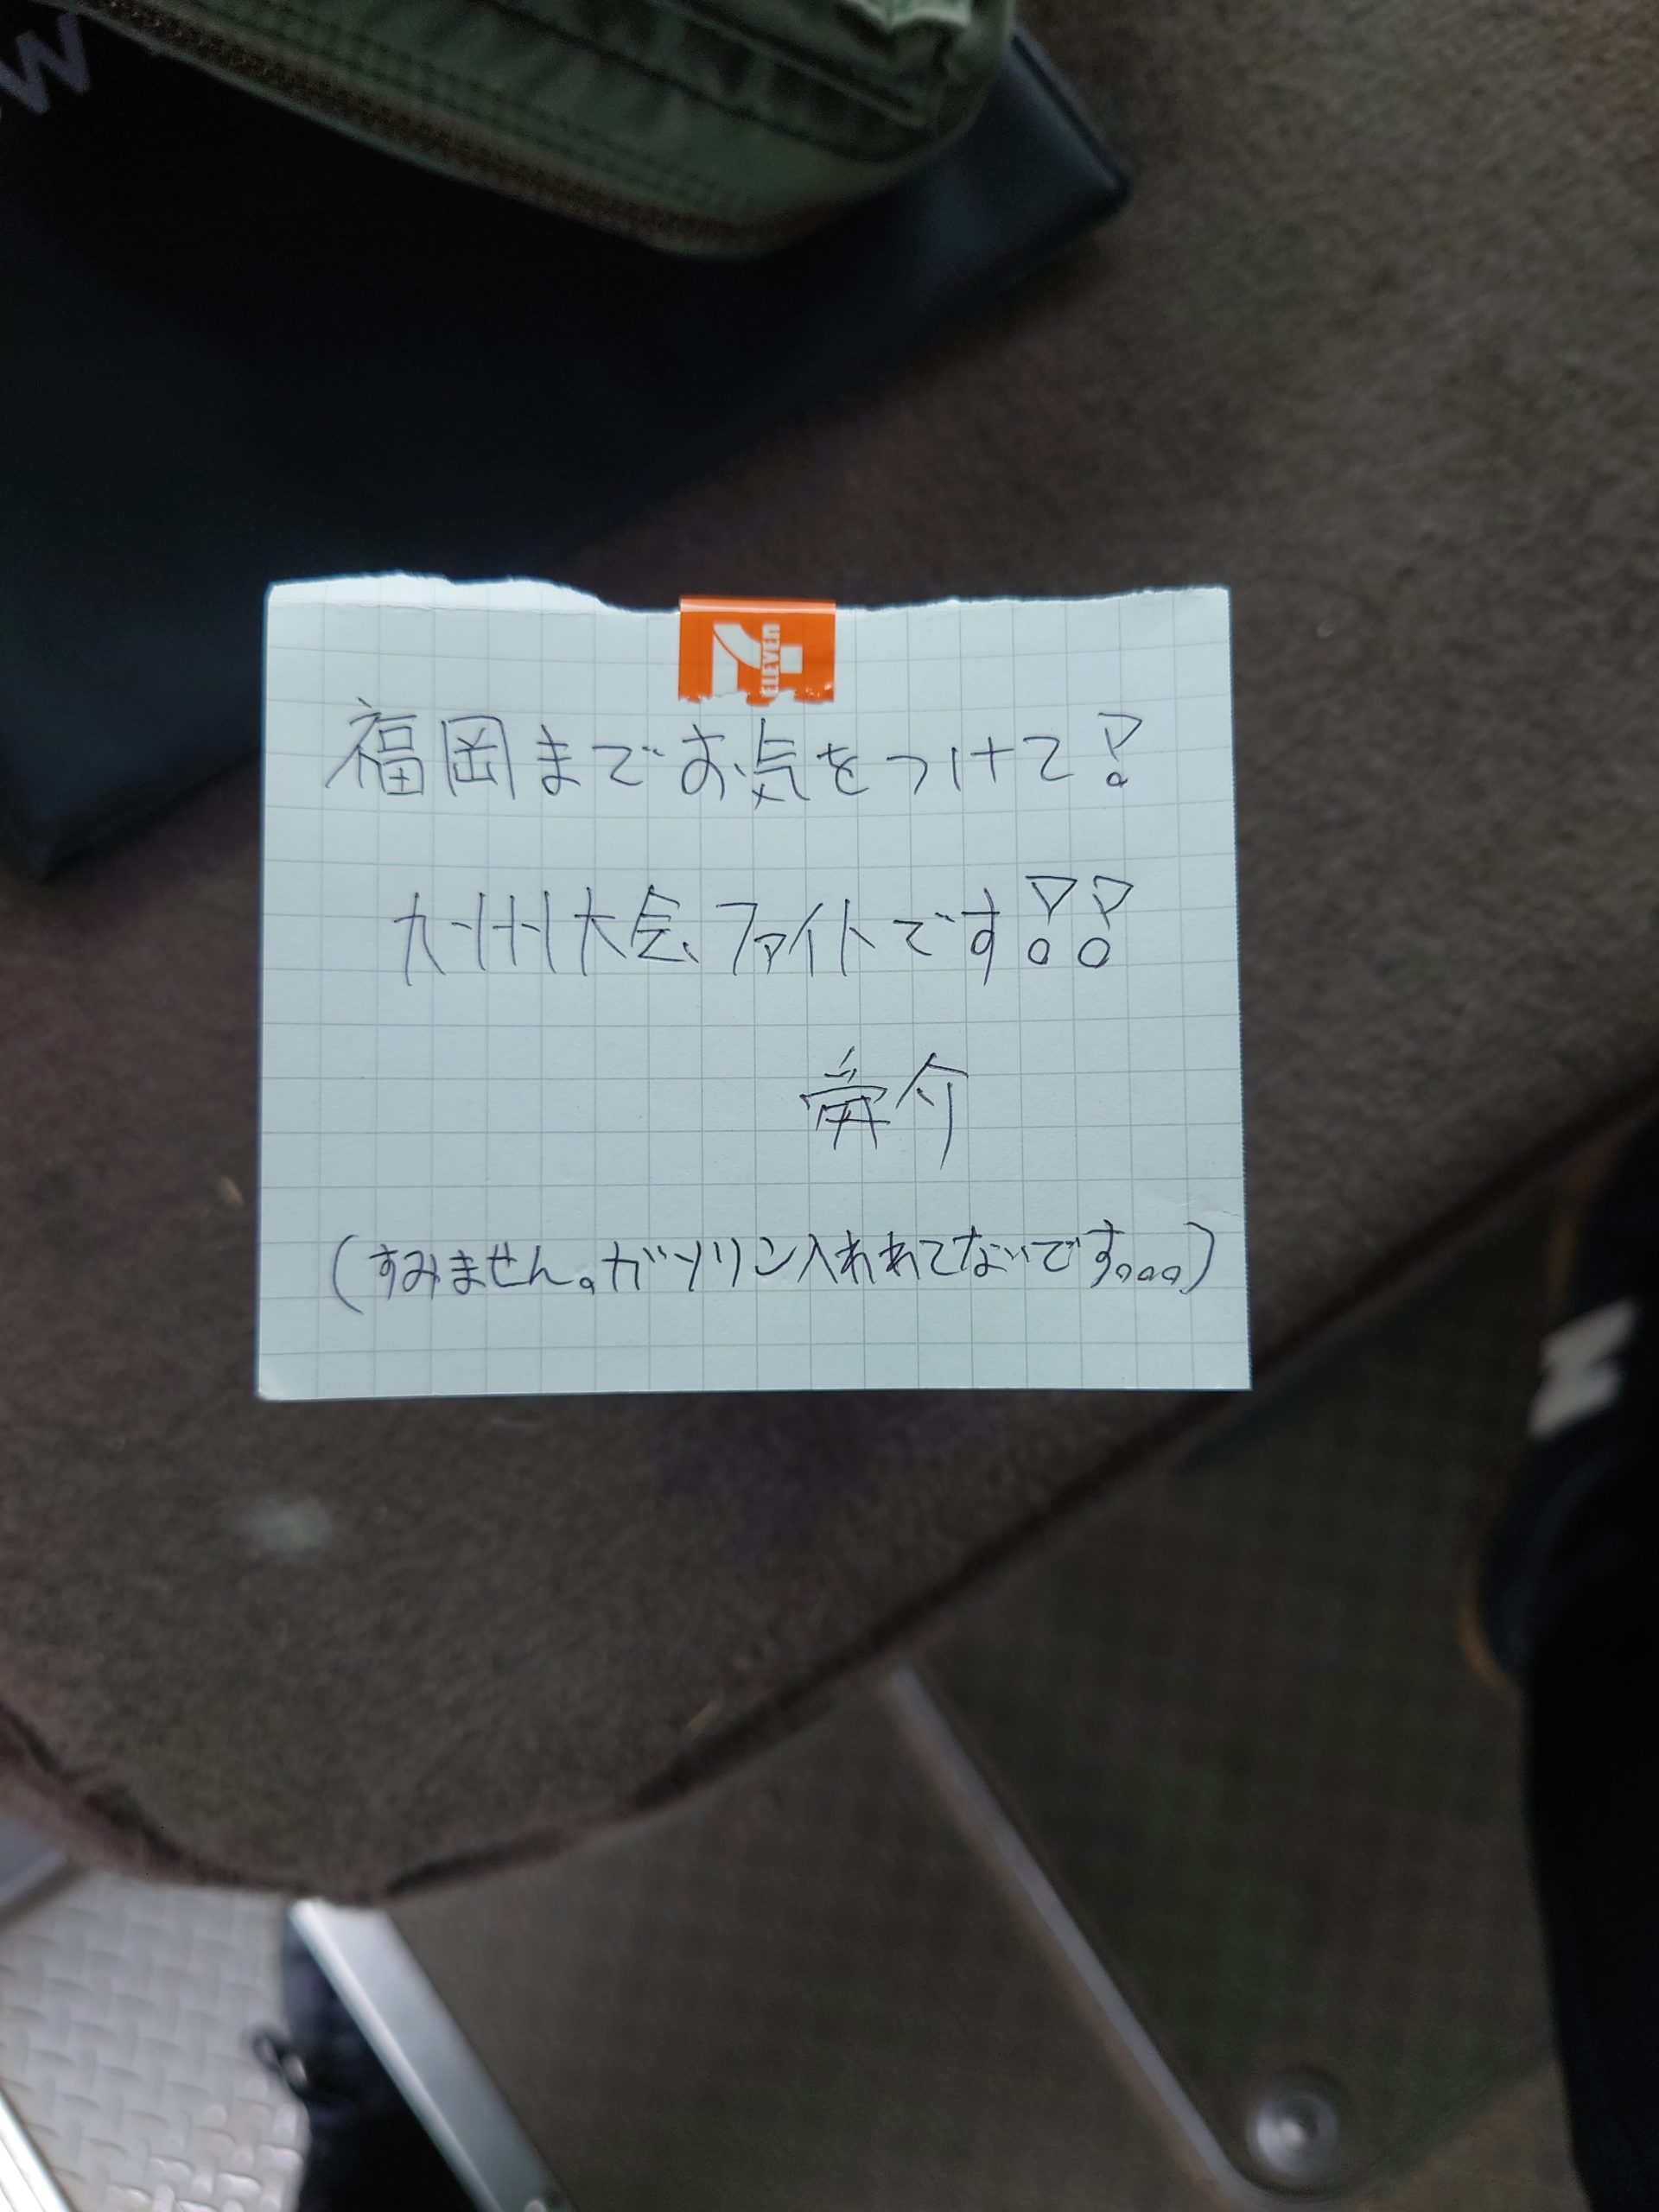 W
ELEVEn
福岡までお気をつけて!
九州大会ファイトです!!
介
(すみません。ガソリン入れれてないです。。。)